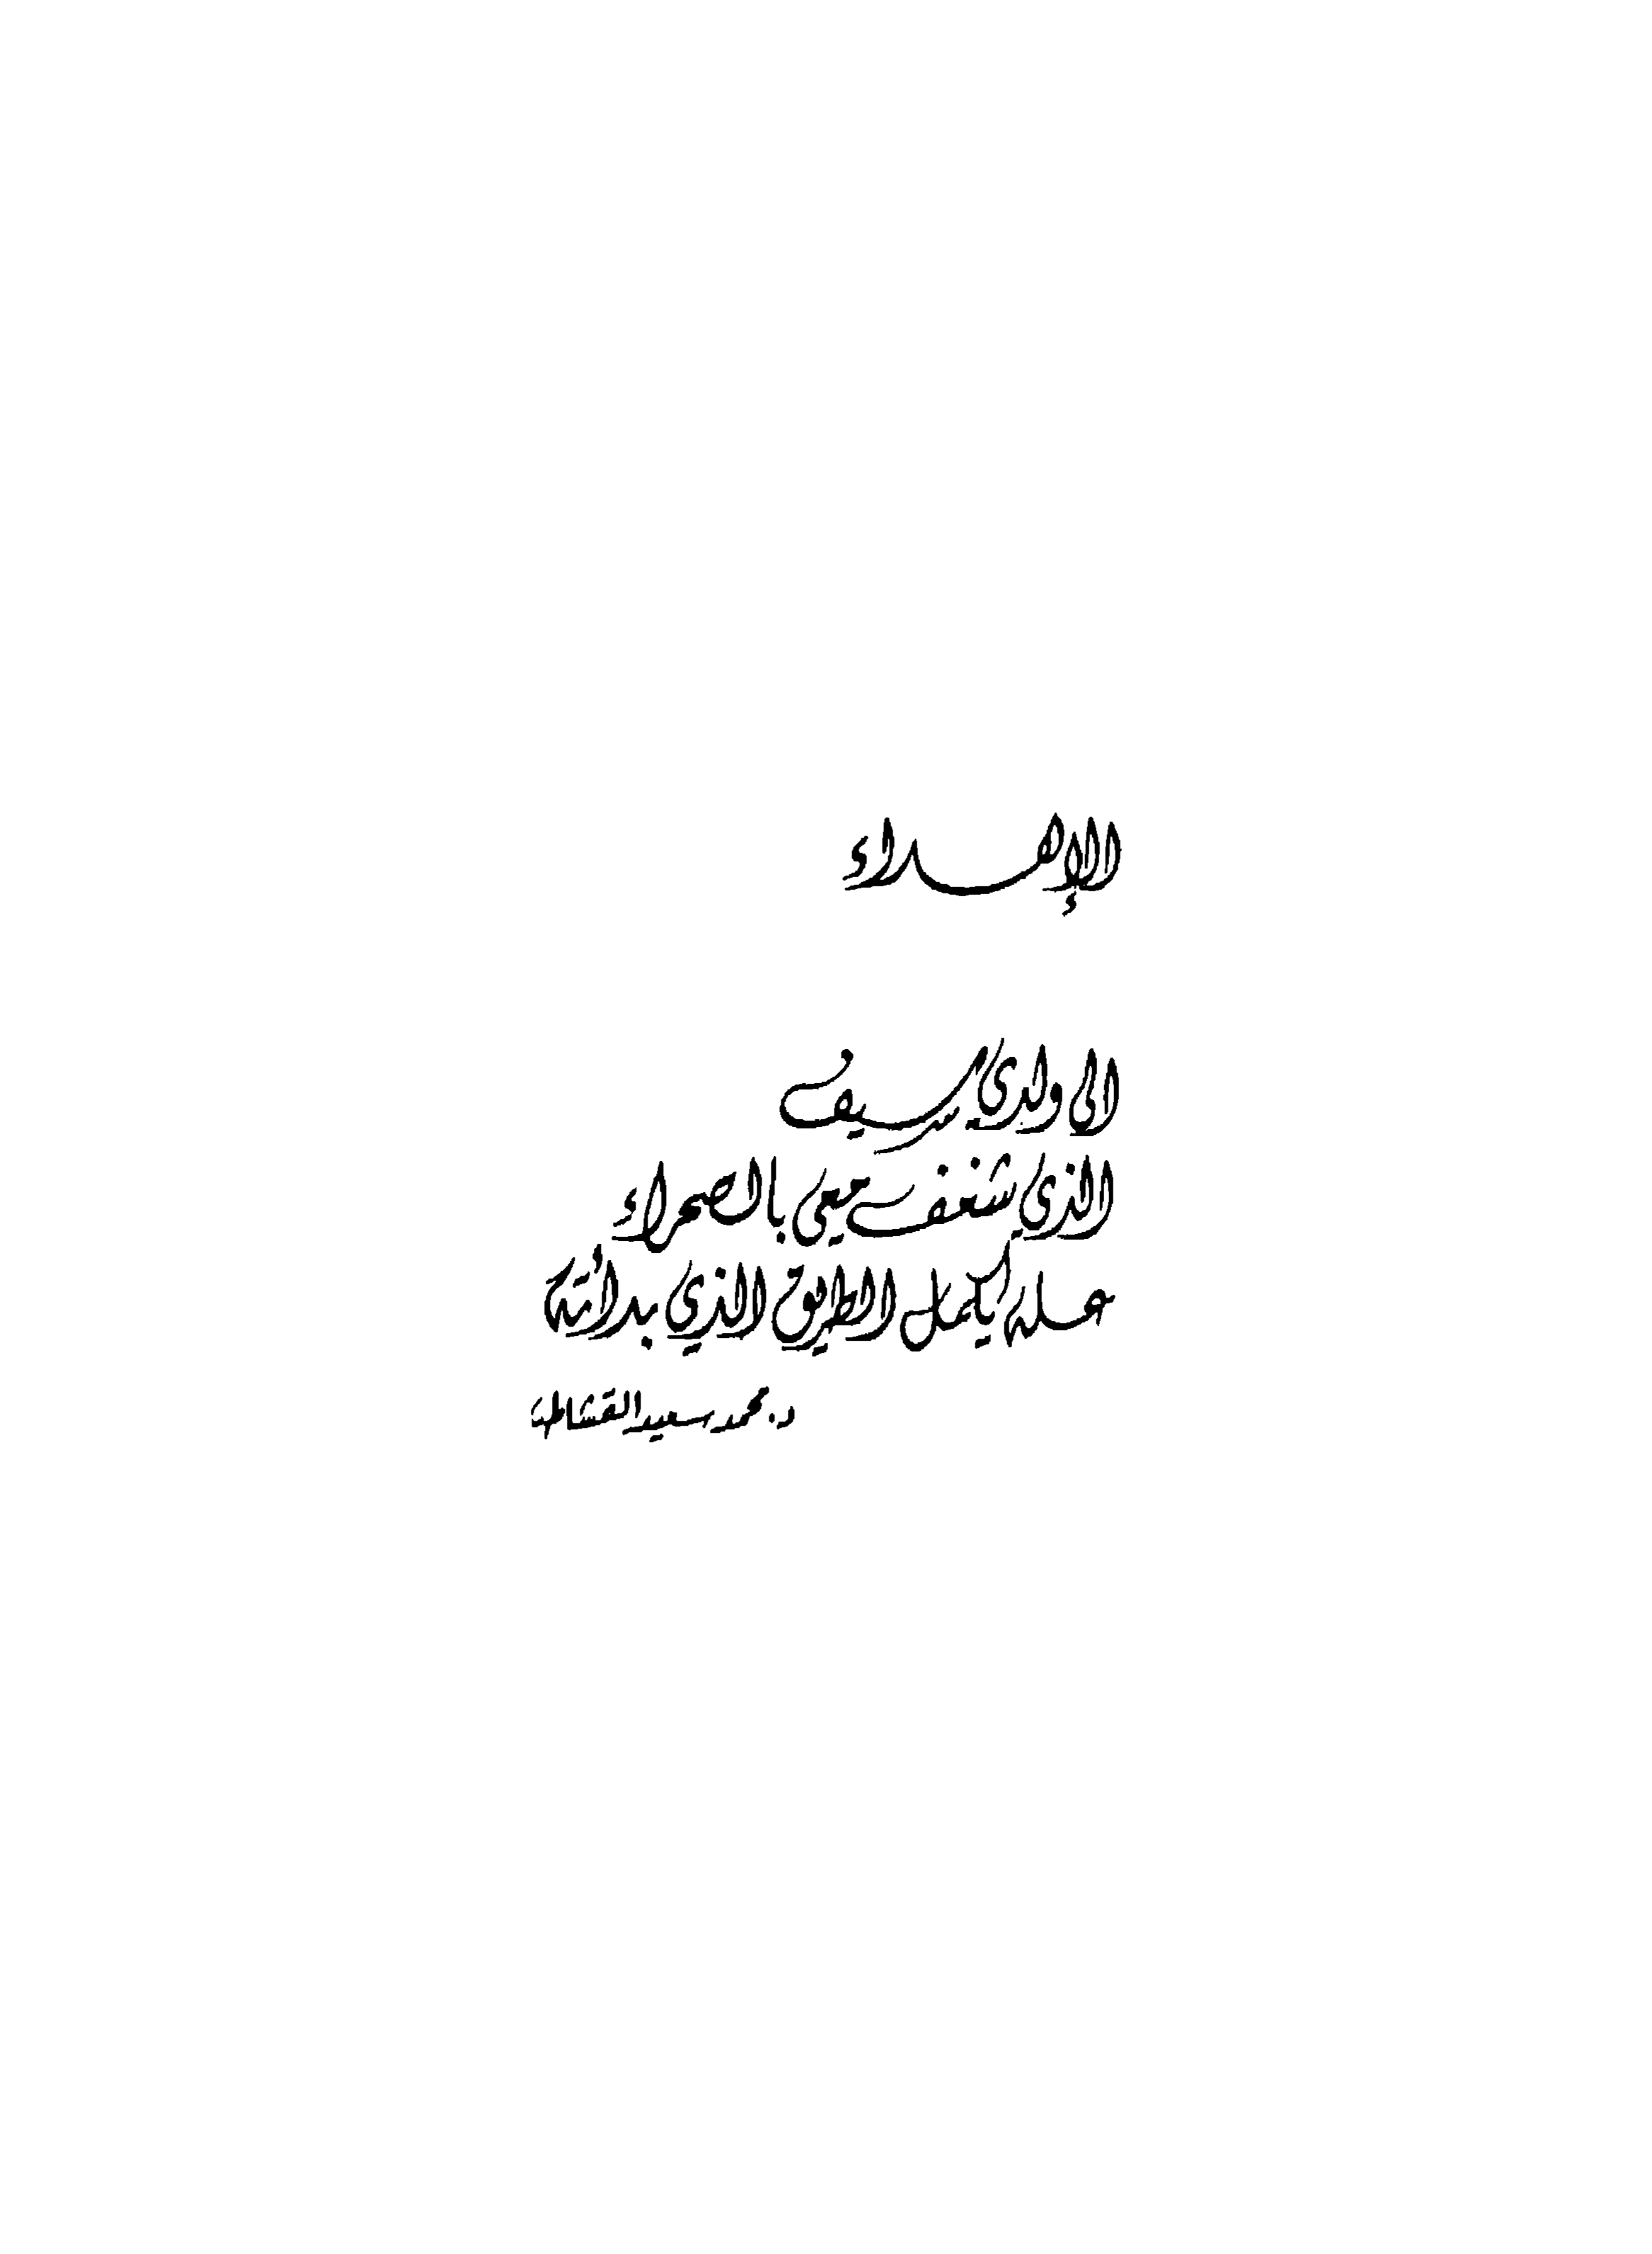 الإهداء
الى ولدي سيف
الذي شغف معي بالصحراء
عله يكمل الطريق الذي بدأته
د. محمد سعيد القشاط